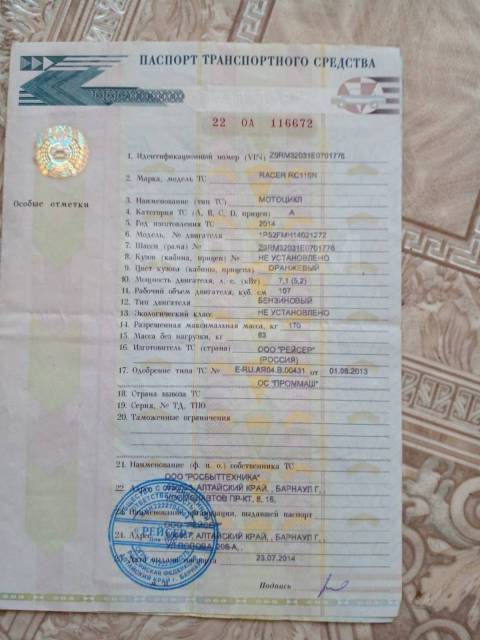 ПАСПОРТ ТРАНСПОРТНОГО СРЕДСТВА
22 ОА 116672
Особые отметки
1. Идентификационный номер (VIN) Z9RM32031E0701776
2. Марка, модель ТС RACER RC110N
3. Наименование (тип ТС) МОТОЦИКЛ
4. Категория ТС (А, В, С, D, прицеп) А
5. Год изготовления ТС 2014
6. Модель, № двигателя 1P52FMH14021272
7. Шасси (рама) № Z9RM32031E0701776
8. Кузов (кабина, прицеп) № НЕ УСТАНОВЛЕНО
9. Цвет кузова (кабины, прицепа) ОРАНЖЕВЫЙ
10. Мощность двигателя, л. с. (кВт) 7,1 (5,2)
11. Рабочий объем двигателя, куб. см 107
12. Тип двигателя БЕНЗИНОВЫЙ
13. Экологический класс НЕ УСТАНОВЛЕНО
14. Разрешенная максимальная масса, кг 170
15. Масса без нагрузки, кг 83
16. Изготовитель ТС (страна) ООО "РЕЙСЕР"
(РОССИЯ)
17. Одобрение типа ТС № E-RU.AR04.B.00431 от 01.08.2013
ОС "ПРОММАШ"
18. Страна вывоза ТС
19. Серия, № ТД, ТПО
20. Таможенные ограничения
21. Наименование (ф. и. о.) собственника ТС
ООО "РОСБЫТТЕХНИКА"
22 АЛТАЙСКИЙ КРАЙ , БАРНАУЛ Г,
КОСМОНАВТОВ ПР-КТ, 8, 16,
Наименование организации, выдавшей паспорт
ООО "РЕЙСЕР"
24. Адрес АЛТАЙСКИЙ КРАЙ , БАРНАУЛ Г, ,
УЛ ПОПОВА,
Дата выдачи паспорта 23.07.2014
«РЕЙСЕР»
Подпись